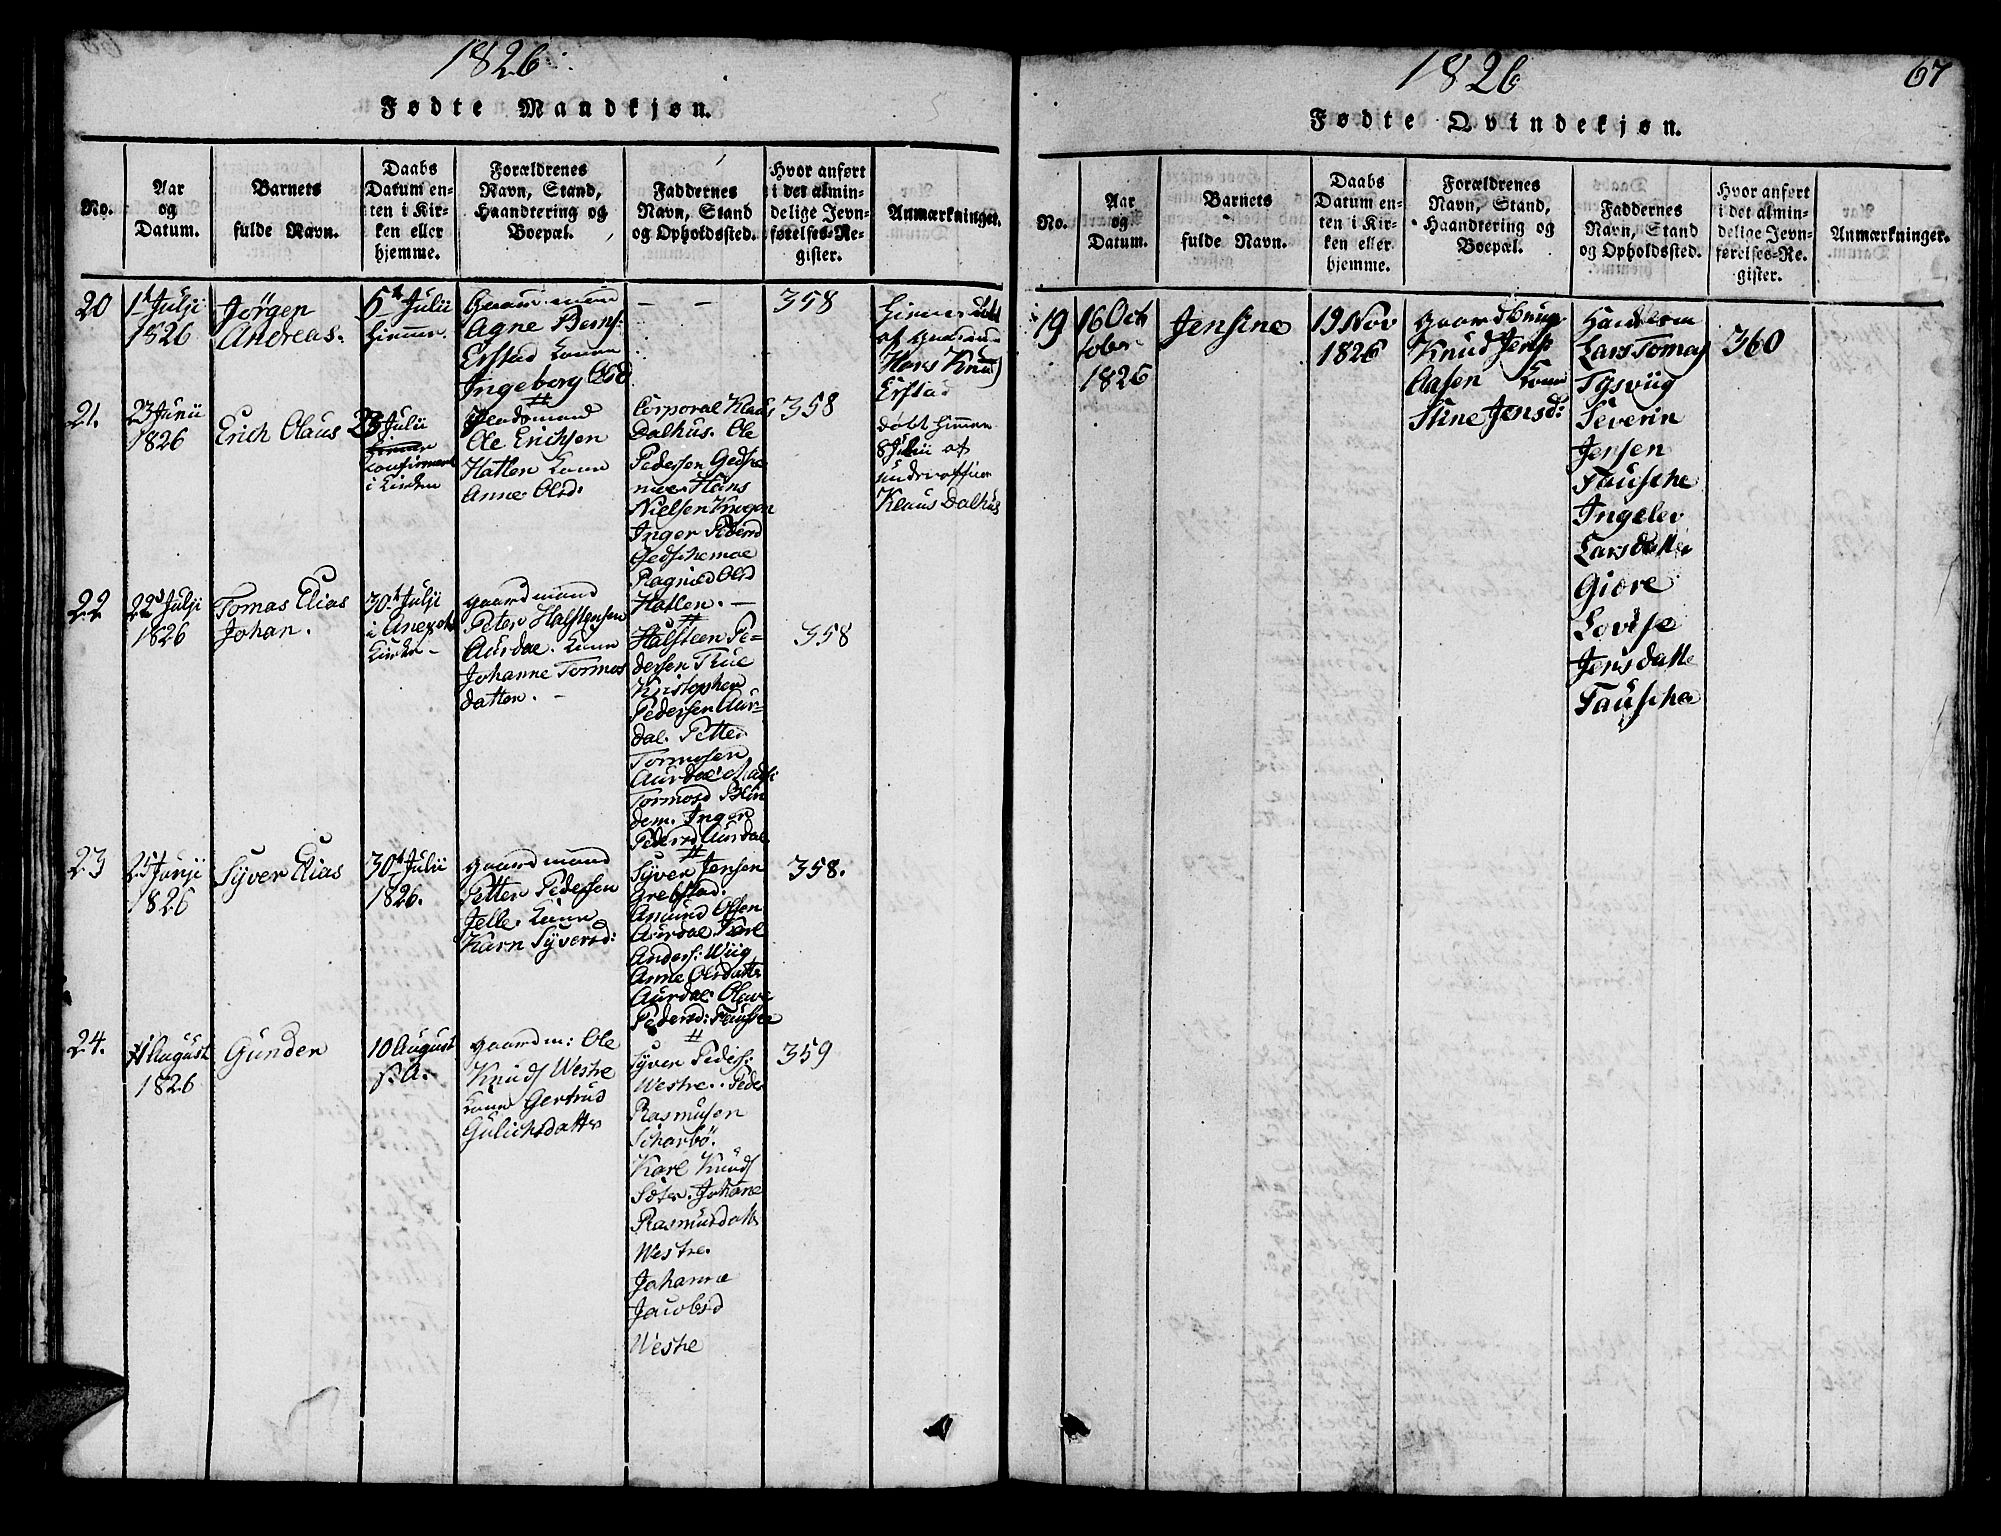 1826.
Fødte Mandkjøn.
No.
Aar
og
Datum.
Barnets
fulde Navn.
Daabs
Datum en-
ten i Kir-
ken eller
hjemme.
Forældrenes
Navn, Stand,
Haandtering og
Boepæl.
Faddernes
Navn, Stand
og Opholdssted.
Hvor anført
i det almin-
delige Jevn-
førelses-Re-
gister.
Anmærkninger.
20
1st Julji
1826
Jørgen
Andreas.
5t Julii
Agne
Erstad
Ingeborg Olsd
— —
358
af
Hans Knud
Erstad
21.
23 Junii
1826
Erich Olaus
23 Julii
i Kirken
Ole Erichsen
Hatlen
Anne Olsd:
Corporal Klaus
Dalhus. Ole
Pedersen Gedsche
moe. Hans
Nielsen Krogen
Inger Pedersd
Gedschemoe
Ragnild Olsd
Hatlen. —
358
døbt hjemme
8 Julii af
underofficer
Klaus Dalhus
22
22d Julji
1826
Tomas Elias
Johan.
30t Julji
i Anexets
Kirke –
gaardmand
Peter Halstensen
Aurdal. Kone
Johanne Tormos
datter. –
Halsteen Pe-
dersen True
Kristophen
Pedersen Aur-
dal. Petter
Tormosen
Aurdal
Tormosd Blin
dem. Inger
Pedersd Aurdal
358
23
25 Junji
1826
Syver Elias
30t Julii
1826.
gaardmand
Petter Pedersen
Jelle. Kone
Karn Syversd:
Syver Jensen
Grebstad.
Amund Olsen
Aurdal Karl
Anders: Wiig
Anne Olsdatter
Aurdal. Olave
Pedersd: Fausche
358.
24.
1 August
1826
Gunder
10 August
s: A.
gaardm: Ole
Knuds Westre
Kone Gertrud
Gulichsdatter
Syver Peders:
Westre. Peder
Rasmusen
Scharbö.
Karl Knuds
Sæter. Johane
Rasmusdatt
Westre.
Johanne
Jacobsd
Westre
359
1826
67
Fødte Qvindekjøn.
No.
Aar
og
Datum.
Barnets
fulde Navn.
Daabs
Datum en-
ten i Kir-
ken eller
hjemme.
Forældrenes
Navn, Stand,
Haandtering og
Boepæl.
Faddernes
Navn, Stand
og Opholdssted.
Hvor anført
i det almin-
delige Jevn-
førelses-Re-
gister.
Anmærkninger.
19
16 Oct
ober
1826
Jensine
19 Nov
1826
Knud Jens
Aasen Kone
Stine Jensd:
Lars Tomas
Tysvüg
Severin
Jensen
Fausche
Ingelev
Larsdatter
Giöre
Lovise
Jensdatte
Fausche
360